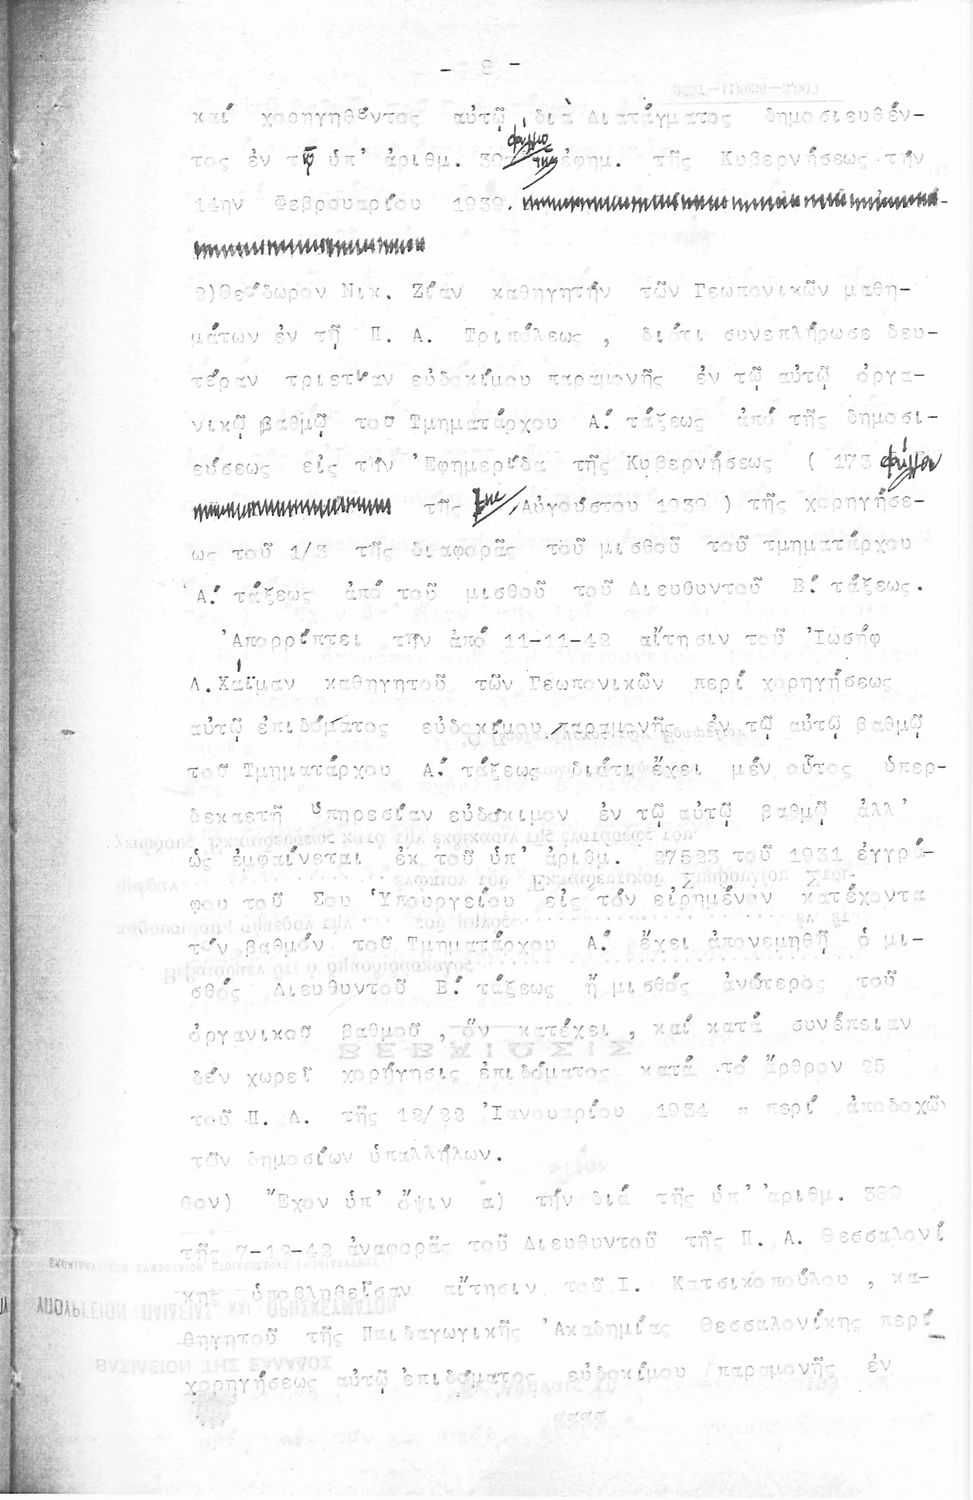 - 8 -
καί χορηγηθέντος αὐτῷ διά Διατάγματος δημοσιευθέν-
τος ἐν τῷ ὑπ' ἀριθμ. φύλλῳ τῆς ἐφημ. τῆς Κυβερνήσεως τήν
14ην Φεβρουαρίου 1939.
2)Θεόδωρον Νικ. Ζίαν καθηγητήν τῶν Γεωπονικῶν μαθη-
μάτων ἐν τῇ Π. Α. Τριπόλεως , διότι συνεπλήρωσε δευ-
τέραν τριετίαν εὐδοκίμου παραμονῆς ἐν τῷ αὐτῷ ὀργα-
νικῷ βαθμῷ τοῦ Τμηματάρχου Α΄ τάξεως ἀπό τῆς δημοσι-
εύσεως εἰς τήν Ἐφημερίδα τῆς Κυβερνήσεως ( 173 φύλλον
τῆς Αὐγούστου 1939 ) τῆς χορηγήσε-
ως τοῦ 1/3 τῆς διαφορᾶς τοῦ μισθοῦ τοῦ τμηματάρχου
Α΄ τάξεως ἀπό τοῦ μισθοῦ τοῦ Διευθυντοῦ Β΄ τάξεως.
Ἀπορρίπτει τήν ἀπό 11-11-42 αἴτησιν τοῦ Ἰωσήφ
Α.Χάϊμαν καθηγητοῦ τῶν Γεωπονικῶν περί χορηγήσεως
αὐτῷ ἐπιδόματος εὐδοκίμου παραμονῆς ἐν τῷ αὐτῷ βαθμῷ
τοῦ Τμηματάρχου Α΄ τάξεως διότι ἔχει μέν οὗτος ὑπερ-
δεκαετῆ ὑπηρεσίαν εὐδόκιμον ἐν τῷ αὐτῷ βαθμῷ ἀλλ'
ὡς ἐμφαίνεται ἐκ τοῦ ὑπ' ἀριθμ. 27523 τοῦ 1931 ἐγγρά-
φου τοῦ Σου Ὑπουργείου εἰς τόν εἰρημένον κατέχοντα
τόν βαθμόν τοῦ Τμηματάρχου Α΄ ἔχει ἀπονεμηθῆ ὁ μι-
σθός Διευθυντοῦ Β΄ τάξεως ἤ μισθός ἀνώτερος τοῦ
ὀργανικοῦ βαθμοῦ , ὅν κατέχει , καί κατά συνέπειαν
δέν χωρεῖ χορήγησις ἐπιδόματος κατά τό ἄρθρον 25
τοῦ Π. Δ. τῆς 12/22 Ἰανουαρίου 1934 " περί ἀποδοχῶν
τῶν δημοσίων ὑπαλλήλων.
6ον) Ἔχον ὑπ' ὄψιν α) τήν διά τῆς ὑπ' ἀριθμ. 389
τῆς 7-12-42 ἀναφορᾶς τοῦ Διευθυντοῦ τῆς Π. Α. Θεσσαλονί
κης ὑποβληθεῖσαν αἴτησιν τοῦ Ι. Κατσικοπούλου , κα-
θηγητοῦ τῆς Παιδαγωγικῆς Ἀκαδημίας Θεσσαλονίκης περί
χορηγήσεως αὐτῷ ἐπιδόματος εὐδοκίμου παραμονῆς ἐν